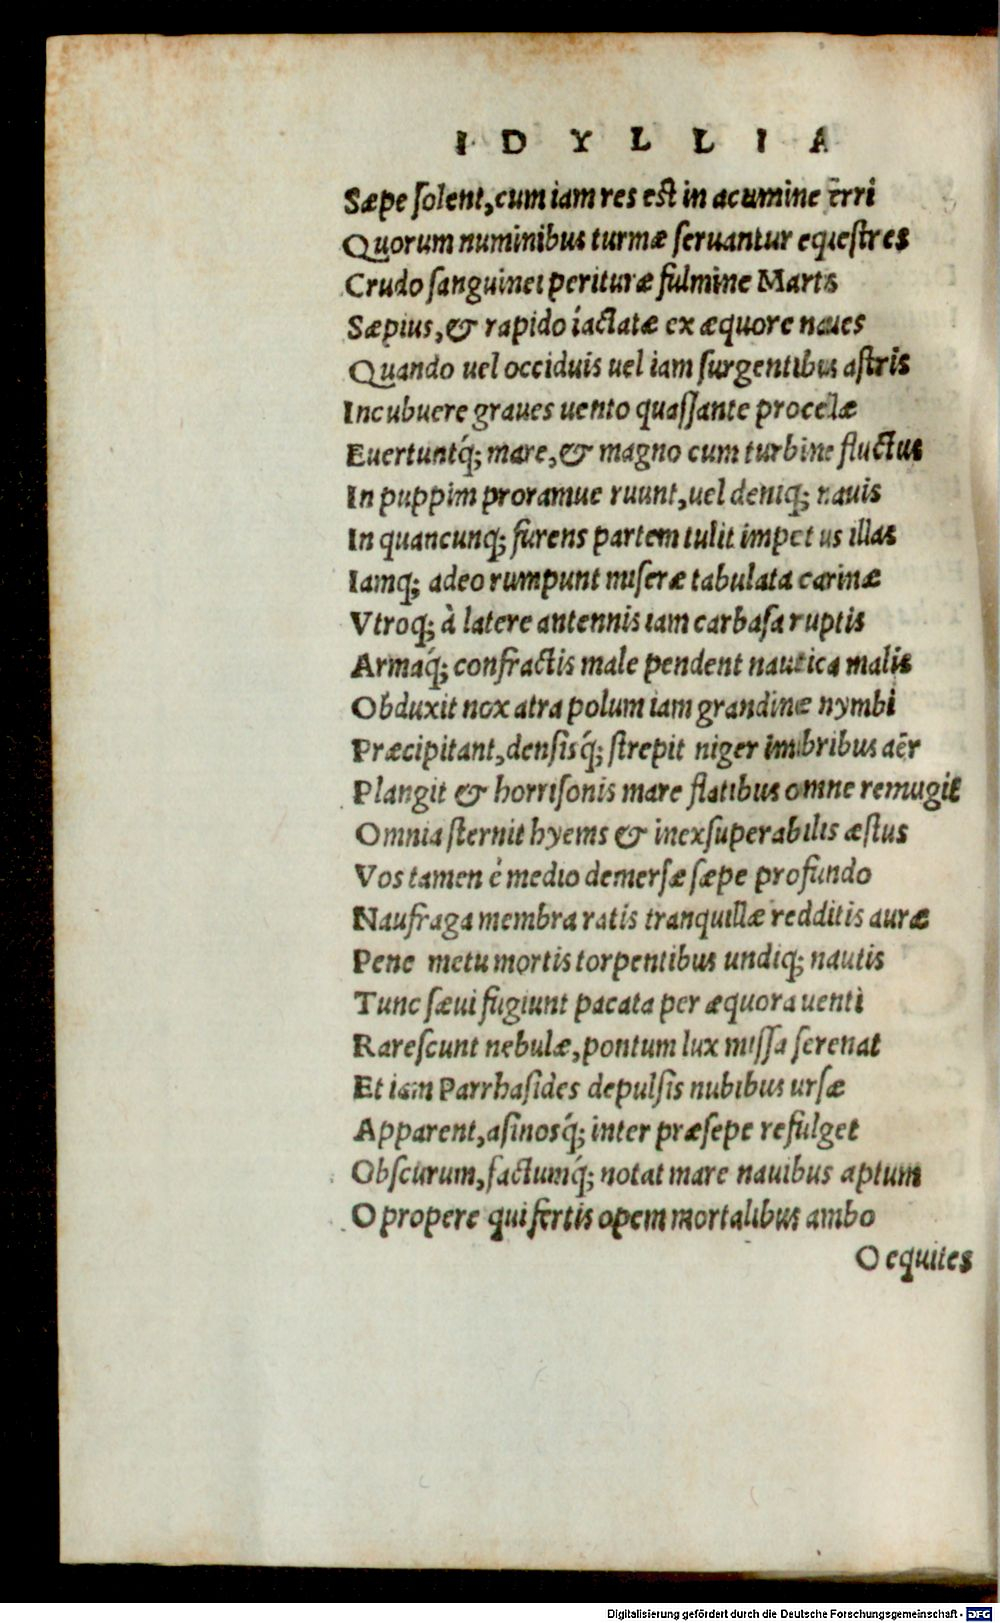 IDYLLIA
Sæpe solent, cum iam res est in acumine ferri
Quorum numinibus turmæ seruantur equestres
Crudo sanguinei perituræ fulmine Martis
Sæpius, & rapido iactatæ ex æquore naues
Quando uel occiduis uel iam surgentibus astris
Incubuere graues uento quassante procellæ
Euertuntq́; mare, & magno cum turbine fluctus
In puppim proramue ruunt, uel deniq; nauis
In quancunq; furens partem tulit impetus illas
Iamq; adeo rumpunt miseræ tabulata carinæ
Vtroq; à latere antennis iam carbasa ruptis
Armaq́; confractis male pendent nautica malis
Obduxit nox atra polum iam grandinæ nymbi
Præcipitant, densisq́; strepit niger imbribus aër
Plangit & horrisonis mare flatibus omne remugit
Omnia sternit hyems & inexsuperabilis æstus
Vos tamen è medio demersæ sæpe profundo
Naufraga membra ratis tranquillæ redditis auræ
Pene metu mortis torpentibus undiq; nautis
Tunc sæui fugiunt pacata per æquora uenti
Rarescunt nebulæ, pontum lux missa serenat
Et iam Parrhasides depulsis nubibus ursæ
Apparent, asinosq́; inter præsepe refulget
Obscurum, factumq́; notat mare nauibus aptum
O propere qui fertis opem mortalibus ambo
O equites
Digitalisierung gefördert durch die Deutsche Forschungsgemeinschaft - DFG